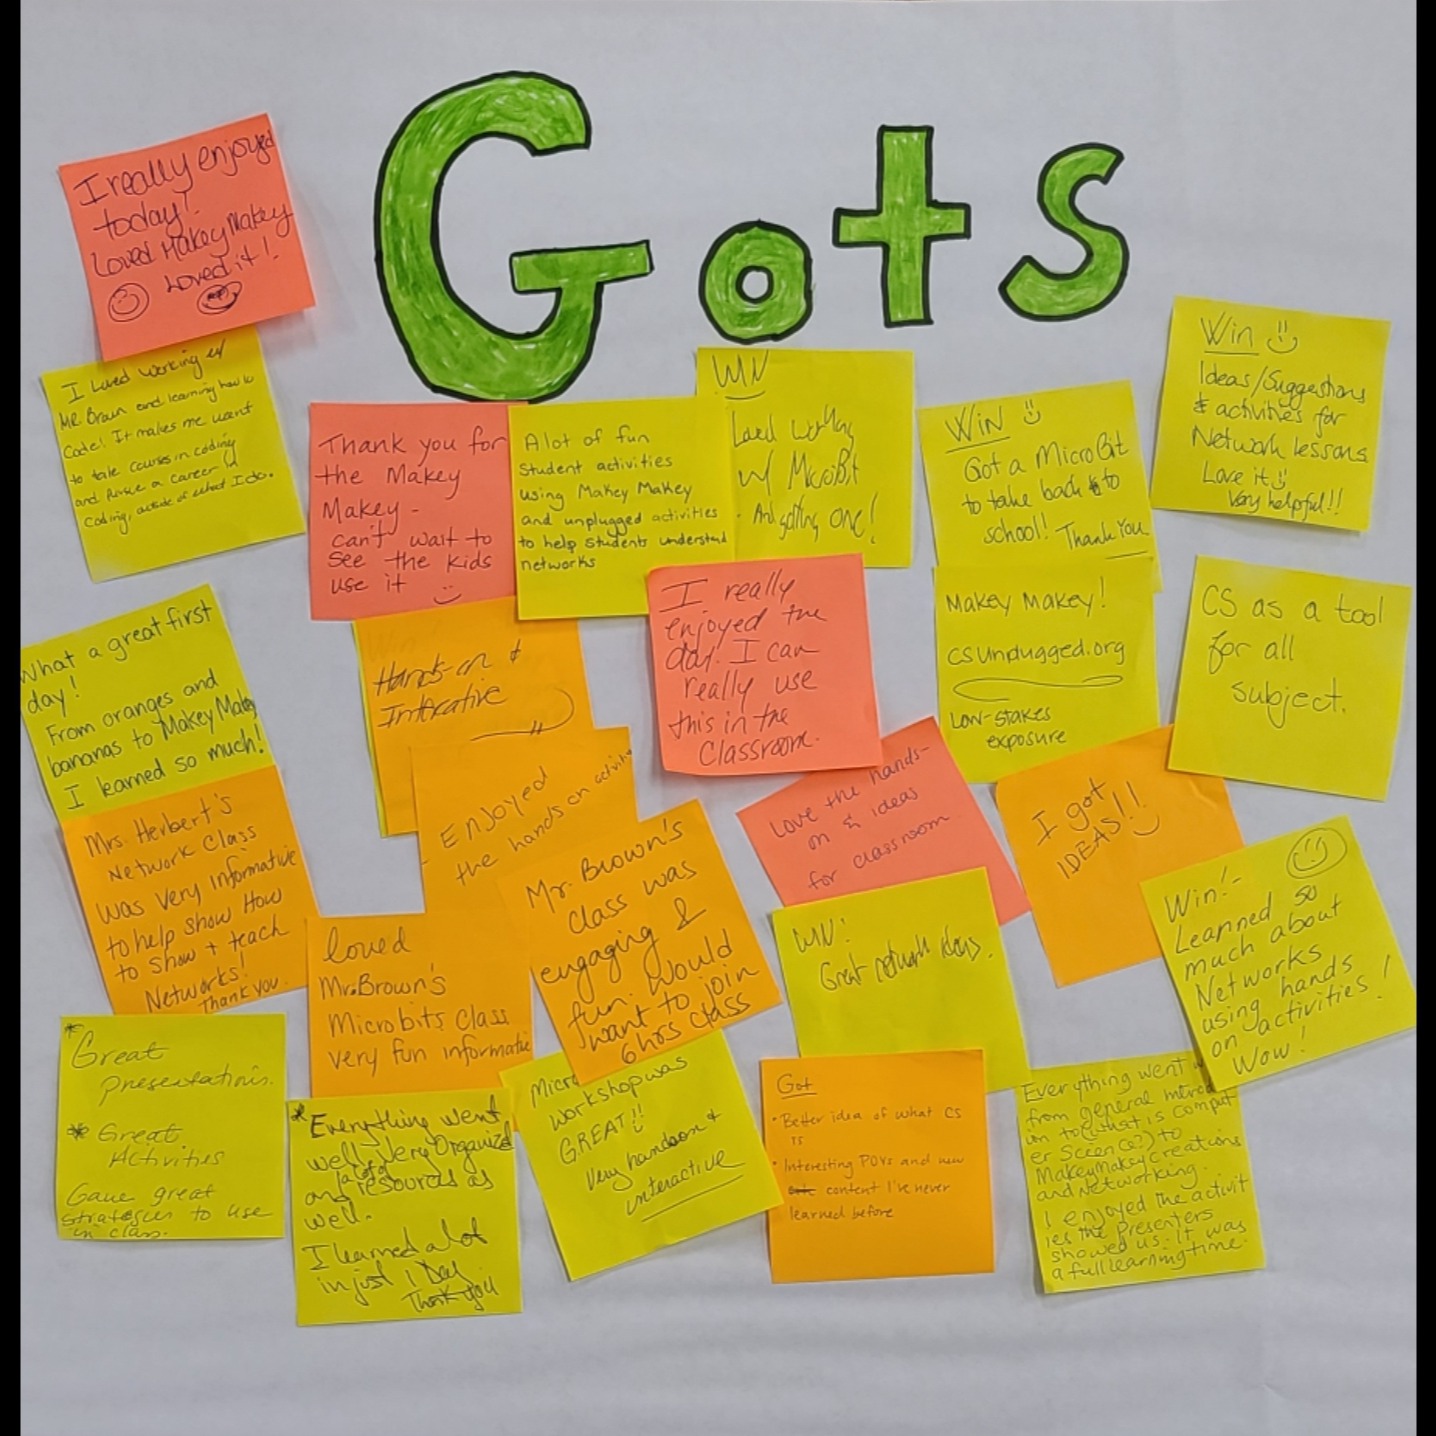 Gots
I really enjoyed
today!
Loved Makey Makey
Loved it!
I Loved working w/
Mr. Braun and learning how to
Code! It makes me want
to take courses in coding
and pursue a career in
Coding, outside of what I do.
Thank you for
the Makey
Makey -
can't wait to
see the kids
use it
A lot of fun
student activities
using Makey Makey
and unplugged activities
to help students understand
networks
WIN
Loved working
w/ MicroBit
And getting one!
Win
Got a MicroBit
to take back to
school! Thank You
Win
Ideas/Suggestions
& activities for
Network lessons
Love it
Very helpful!!
What a great first
day!
From oranges and
bananas to Makey Makey
I learned so much!
Win!
Hands-on &
I really
enjoyed the
day. I can
really use
this in the
Classroom.
Makey Makey!
csunplugged.org
Low-stakes
exposure
CS as a tool
for all
subject.
Mrs. Herbert's
Network Class
was very informative
to help show How
to show + teach
Networks!
Thank you.
- Enjoyed
the hands on activiti
Love the hands-
on & ideas
for classroom.
I got
IDEAS!!
Mr. Brown's
class was
engaging &
fun. Would
want to join
6 hrs class
loved
Mr. Brown's
Microbits class
very fun informative
WIN!
Great network ideas.
Win! -
Learned so
much about
Networks
using hands
on activities!
Wow!
* Great
presentations.
* Great
Activities
Gave great
strategies to use
in class.
* Everything went
well. Very Organized
a lot of
and resources as
well.
I learned a lot
in just 1 Day
Thank you
Micro
Workshop was
GREAT!!
Very handson &
interactive
Got
• Better idea of what CS
is
• Interesting POVs and new
content I've never
learned before
Everything went w
from general introd
on to (what is comput
er Science?) to
MakeyMakey Creations
and Networking.
I enjoyed the activit
ies the Presenters
showed us. It was
a full learning time.